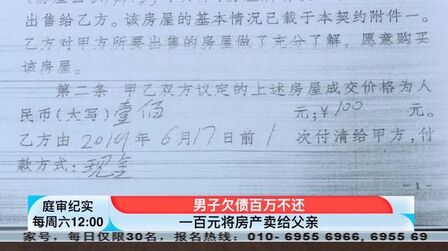 出售给乙方。该房屋的基本情况已载于本契约附件一。
乙方对甲方所要出售的房屋做了充分了解，愿意购买
该房屋。
第二条 甲乙双方议定的上述房屋成交价格为人
民币（大写）壹佰 元；¥100 元。
乙方由2019年6月17日前1次付清给甲方，付
款方式：现金
-1-
庭审纪实
每周六12:00
男子欠债百万不还
一百元将房产卖给父亲
家号，每日仅限30名，报名热线：010- 6955 6966，6955 69